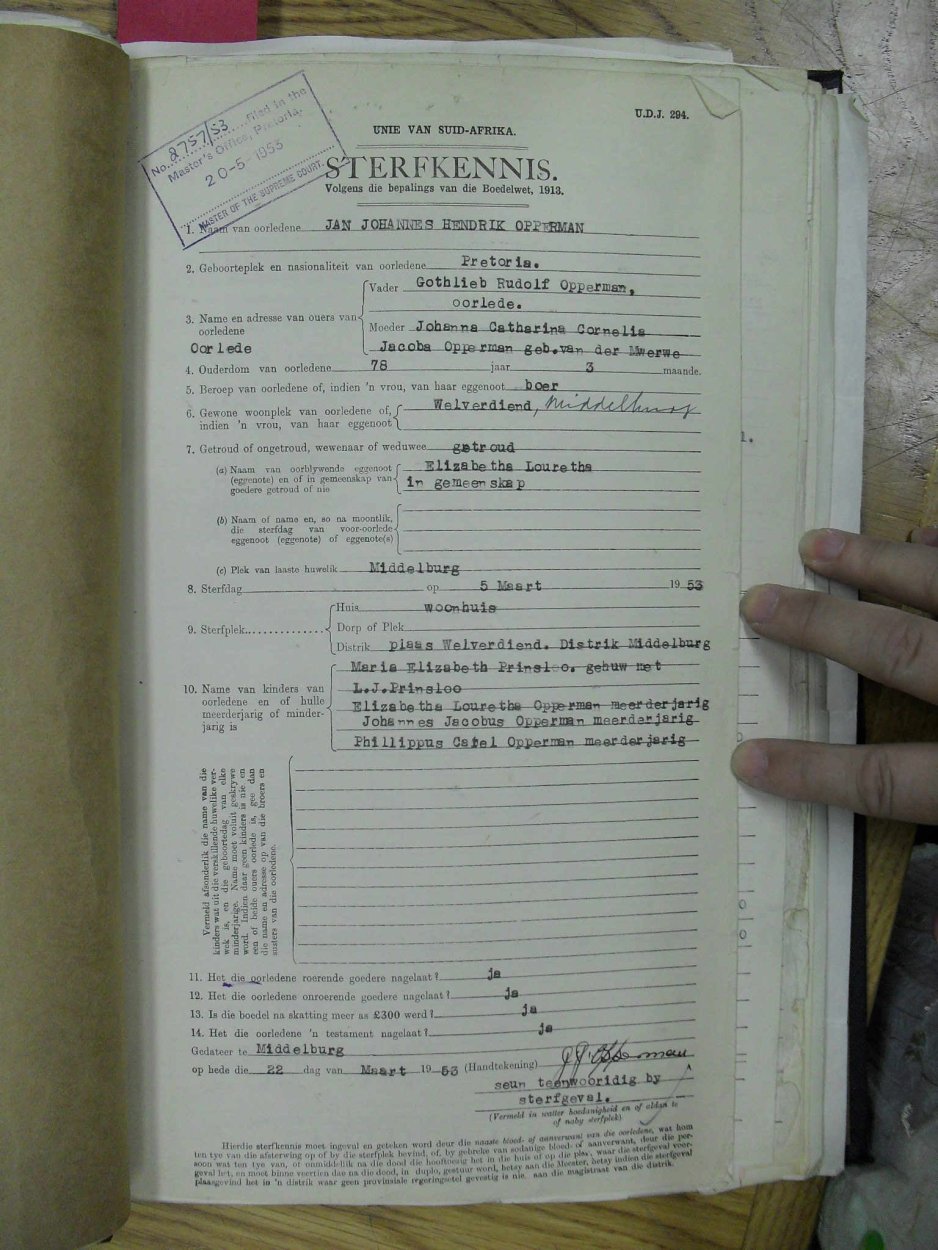 U.D.J. 294.
No. 8757/53 Filed in the
Master's Office, Pretoria,
20-5-1953
MASTER OF THE SUPREME COURT.
UNIE VAN SUID-AFRIKA.
STERFKENNIS.
Volgens die bepalings van die Boedelwet, 1913.
1. Naam van oorledene JAN JOHANNES HENDRIK OPPERMAN
2. Geboorteplek en nasionaliteit van oorledene Pretoria.
Vader Gothlieb Rudolf Opperman,
oorlede.
3. Name en adresse van ouers van oorledene
Moeder Johanna Catharina Cornelia
Oorlede
Jacoba Opperman geb.van der Mwerwe
4. Ouderdom van oorledene 78 jaar 3 maande.
5. Beroep van oorledene of, indien 'n vrou, van haar eggenoot boer
6. Gewone woonplek van oorledene of, Welverdiend, Middelburg
indien 'n vrou, van haar eggenoot
7. Getroud of ongetroud, wewenaar of weduwee getroud
(a) Naam van oorblywende eggenoot Elizabetha Louretha
(eggenote) en of in gemeenskap van in gemeenskap
goedere getroud of nie
(b) Naam of name en, so na moontlik,
die sterfdag van voor-oorlede
eggenoot (eggenote) of eggenote(s)
(c) Plek van laaste huwelik Middelburg
8. Sterfdag op 5 Maart 19 53
Huis woonhuis
9. Sterfplek Dorp of Plek
Distrik plaas Welverdiend. Distrik Middelburg
Maria Elizabeth Prinsloo. gehuw met
10. Name van kinders van L.J.Prinsloo
oorledene en of hulle Elizabetha Louretha Opperman meerderjarig
meerderjarig of minder- Johannes Jacobus Opperman meerderjarig
jarig is
Phillippus Carel Opperman meerderjarig
Vermeld afsonderlik die name van die
kinders wat uit die verskillende huwelike ver-
wek is, en die geboortedag van elke
minderjarige. Name moet voluit geskrywe
word. Indien daar geen kinders is nie en
een of beide ouers oorlede is, gee dan
die name en adresse op van die broers en
susters van die oorledene.
11. Het die oorledene roerende goedere nagelaat? ja
12. Het die oorledene onroerende goedere nagelaat? ja
13. Is die boedel na skatting meer as £300 werd? ja
14. Het die oorledene 'n testament nagelaat? ja
Gedateer te Middelburg
op hede die 22 dag van Maart 19 53 (Handtekening) J.J. Opperman
seun teenwooridig by
sterfgeval.
(Vermeld in watter hoedanigheid en of aldan te
of naby sterfplek)
Hierdie sterfkennis moet ingevul en geteken word deur die naaste bloed- of aanverwant van die oorledene, wat hom
ten tye van die afsterwing op of by die sterfplek bevind, of, by gebreke van sodanige bloed- of aanverwant, deur die per-
soon wat ten tye van, of onmiddelik na die dood die hooftoesig het in die huis of op die plek, waar die sterfgeval voor-
geval het, en moet binne veertien dae na die dood, in duplo, gestuur word, betsy aan die Meester, betsy indien die sterfgeval
plaasgevind het in 'n distrik waar geen provinsiale regeringsetel gevestig is nie, aan die magistraat van die distrik.